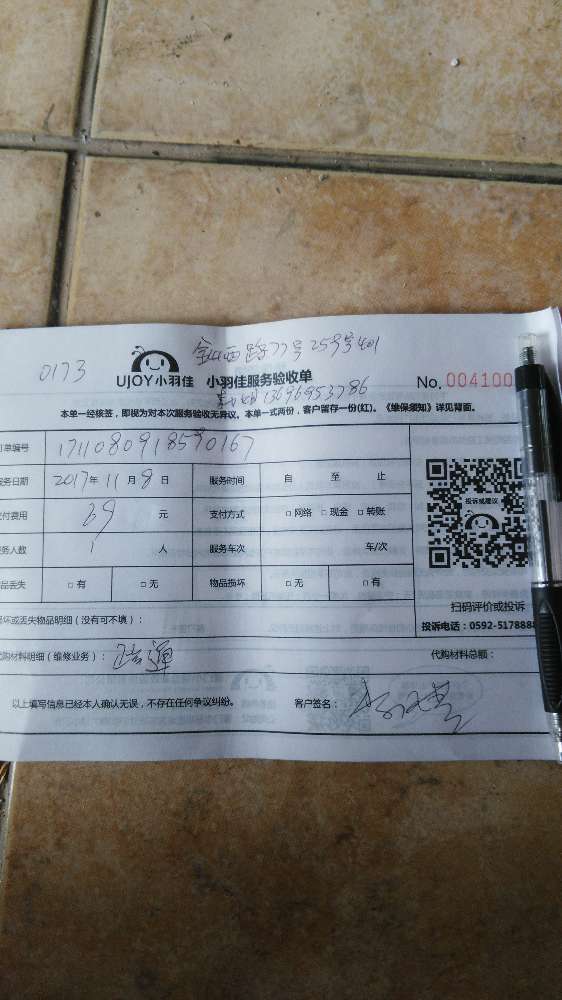 0173
UJOY小羽佳 小羽佳服务验收单
No. 004100
13696953786
本单一经核签，即视为对本次服务验收无异议。本单一式两份，客户留存一份(红)。《维保须知》详见背面。
订单编号 1711080918590167
服务日期 2017年 11月 8日 服务时间 自 至 止
支付费用 39 元 支付方式 □网络 □现金 □转账
服务人数 1 人 服务车次 车/次
物品丢失 □有 □无 物品损坏 □无 □有
投诉或建议
扫码评价或投诉
投诉电话：0592-5178888
损坏或丢失物品明细（没有可不填）：
代购材料明细（维修业务）： 代购材料总额：
以上填写信息已经本人确认无误，不存在任何争议纠纷。 客户签名：